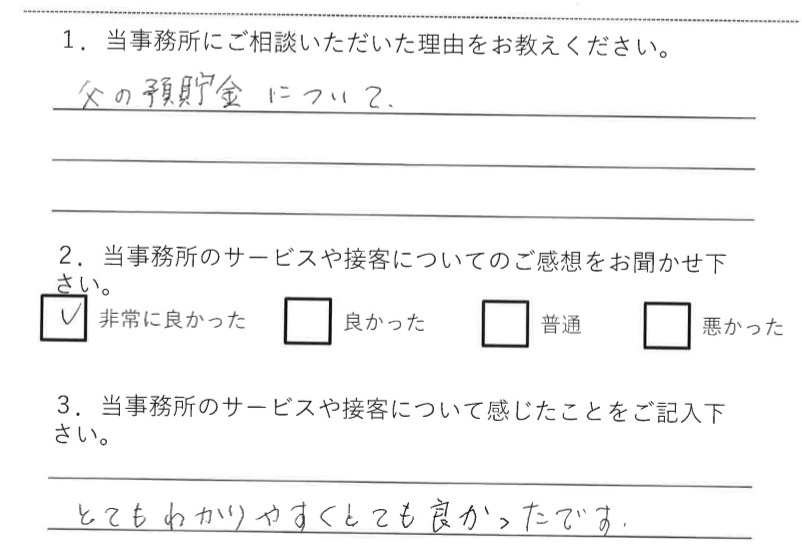 1．当事務所にご相談いただいた理由をお教えください。
父の預貯金について.
2．当事務所のサービスや接客についてのご感想をお聞かせ下
さい。
☑ 非常に良かった □ 良かった □ 普通 □ 悪かった
3．当事務所のサービスや接客について感じたことをご記入下
さい。
とてもわかりやすくとても良かったです.